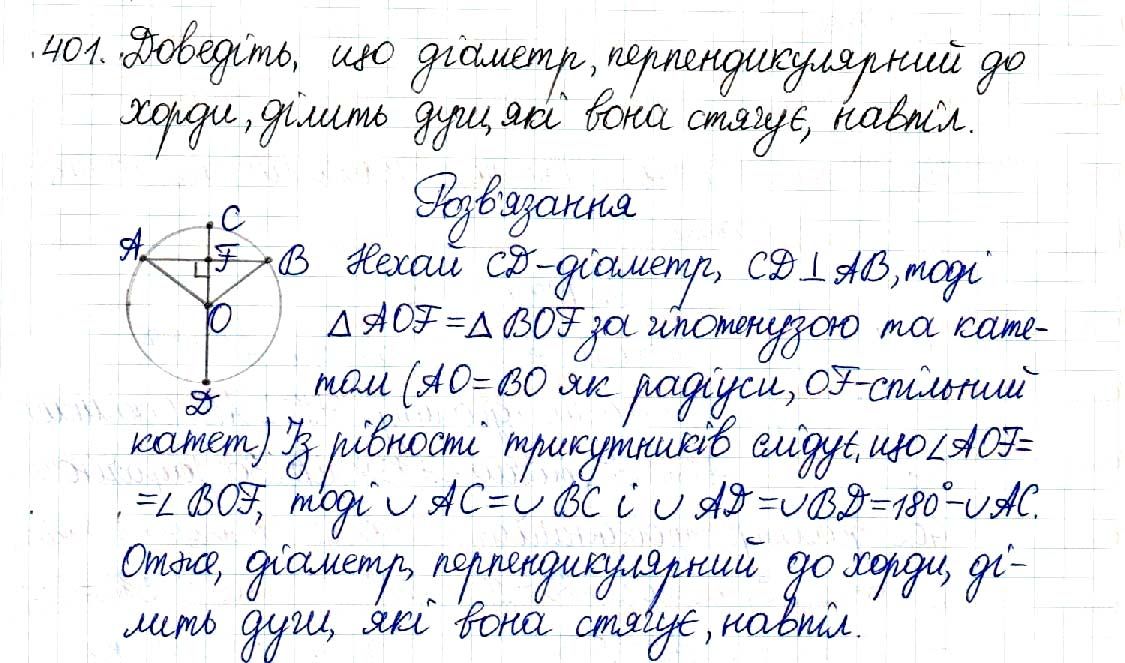 401. Доведіть, що діаметр, перпендикулярний до
хорди, ділить дуги, які вона стягує, навпіл.
Розв'язання
C
A
F
B
O
D
Нехай CD-діаметр, CD⊥AB, тоді
△AOF=△BOF за гіпотенузою та кате-
том (AO=BO як радіуси, OF-спільний
катет). Із рівності трикутників слідує, що ∠AOF=
=∠BOF, тоді ∪AC=∪BC і ∪AD=∪BD=180°-∪AC.
Отже, діаметр, перпендикулярний до хорди, ді-
лить дуги, які вона стягує, навпіл.